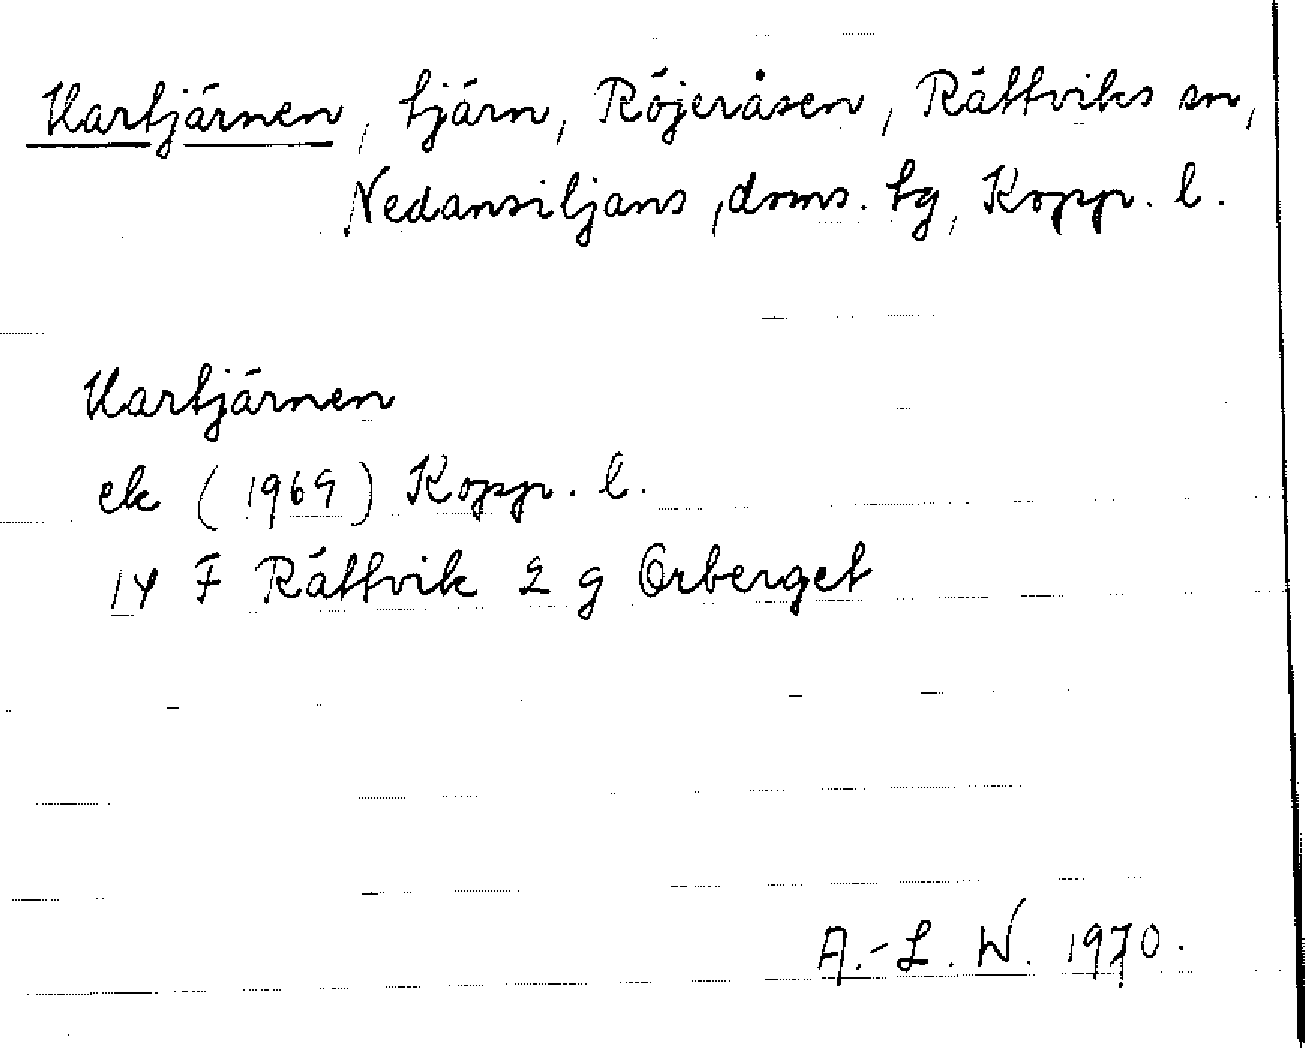 Hartjärnen, tjärn, Röjeråsen, Rättviks sn,
Nedansiljans, doms. tg, Kopp. l.
Hartjärnen
ek (1969) Kopp. l.
14 F Rättvik 2 g Orberget
A.-L. W. 1970.